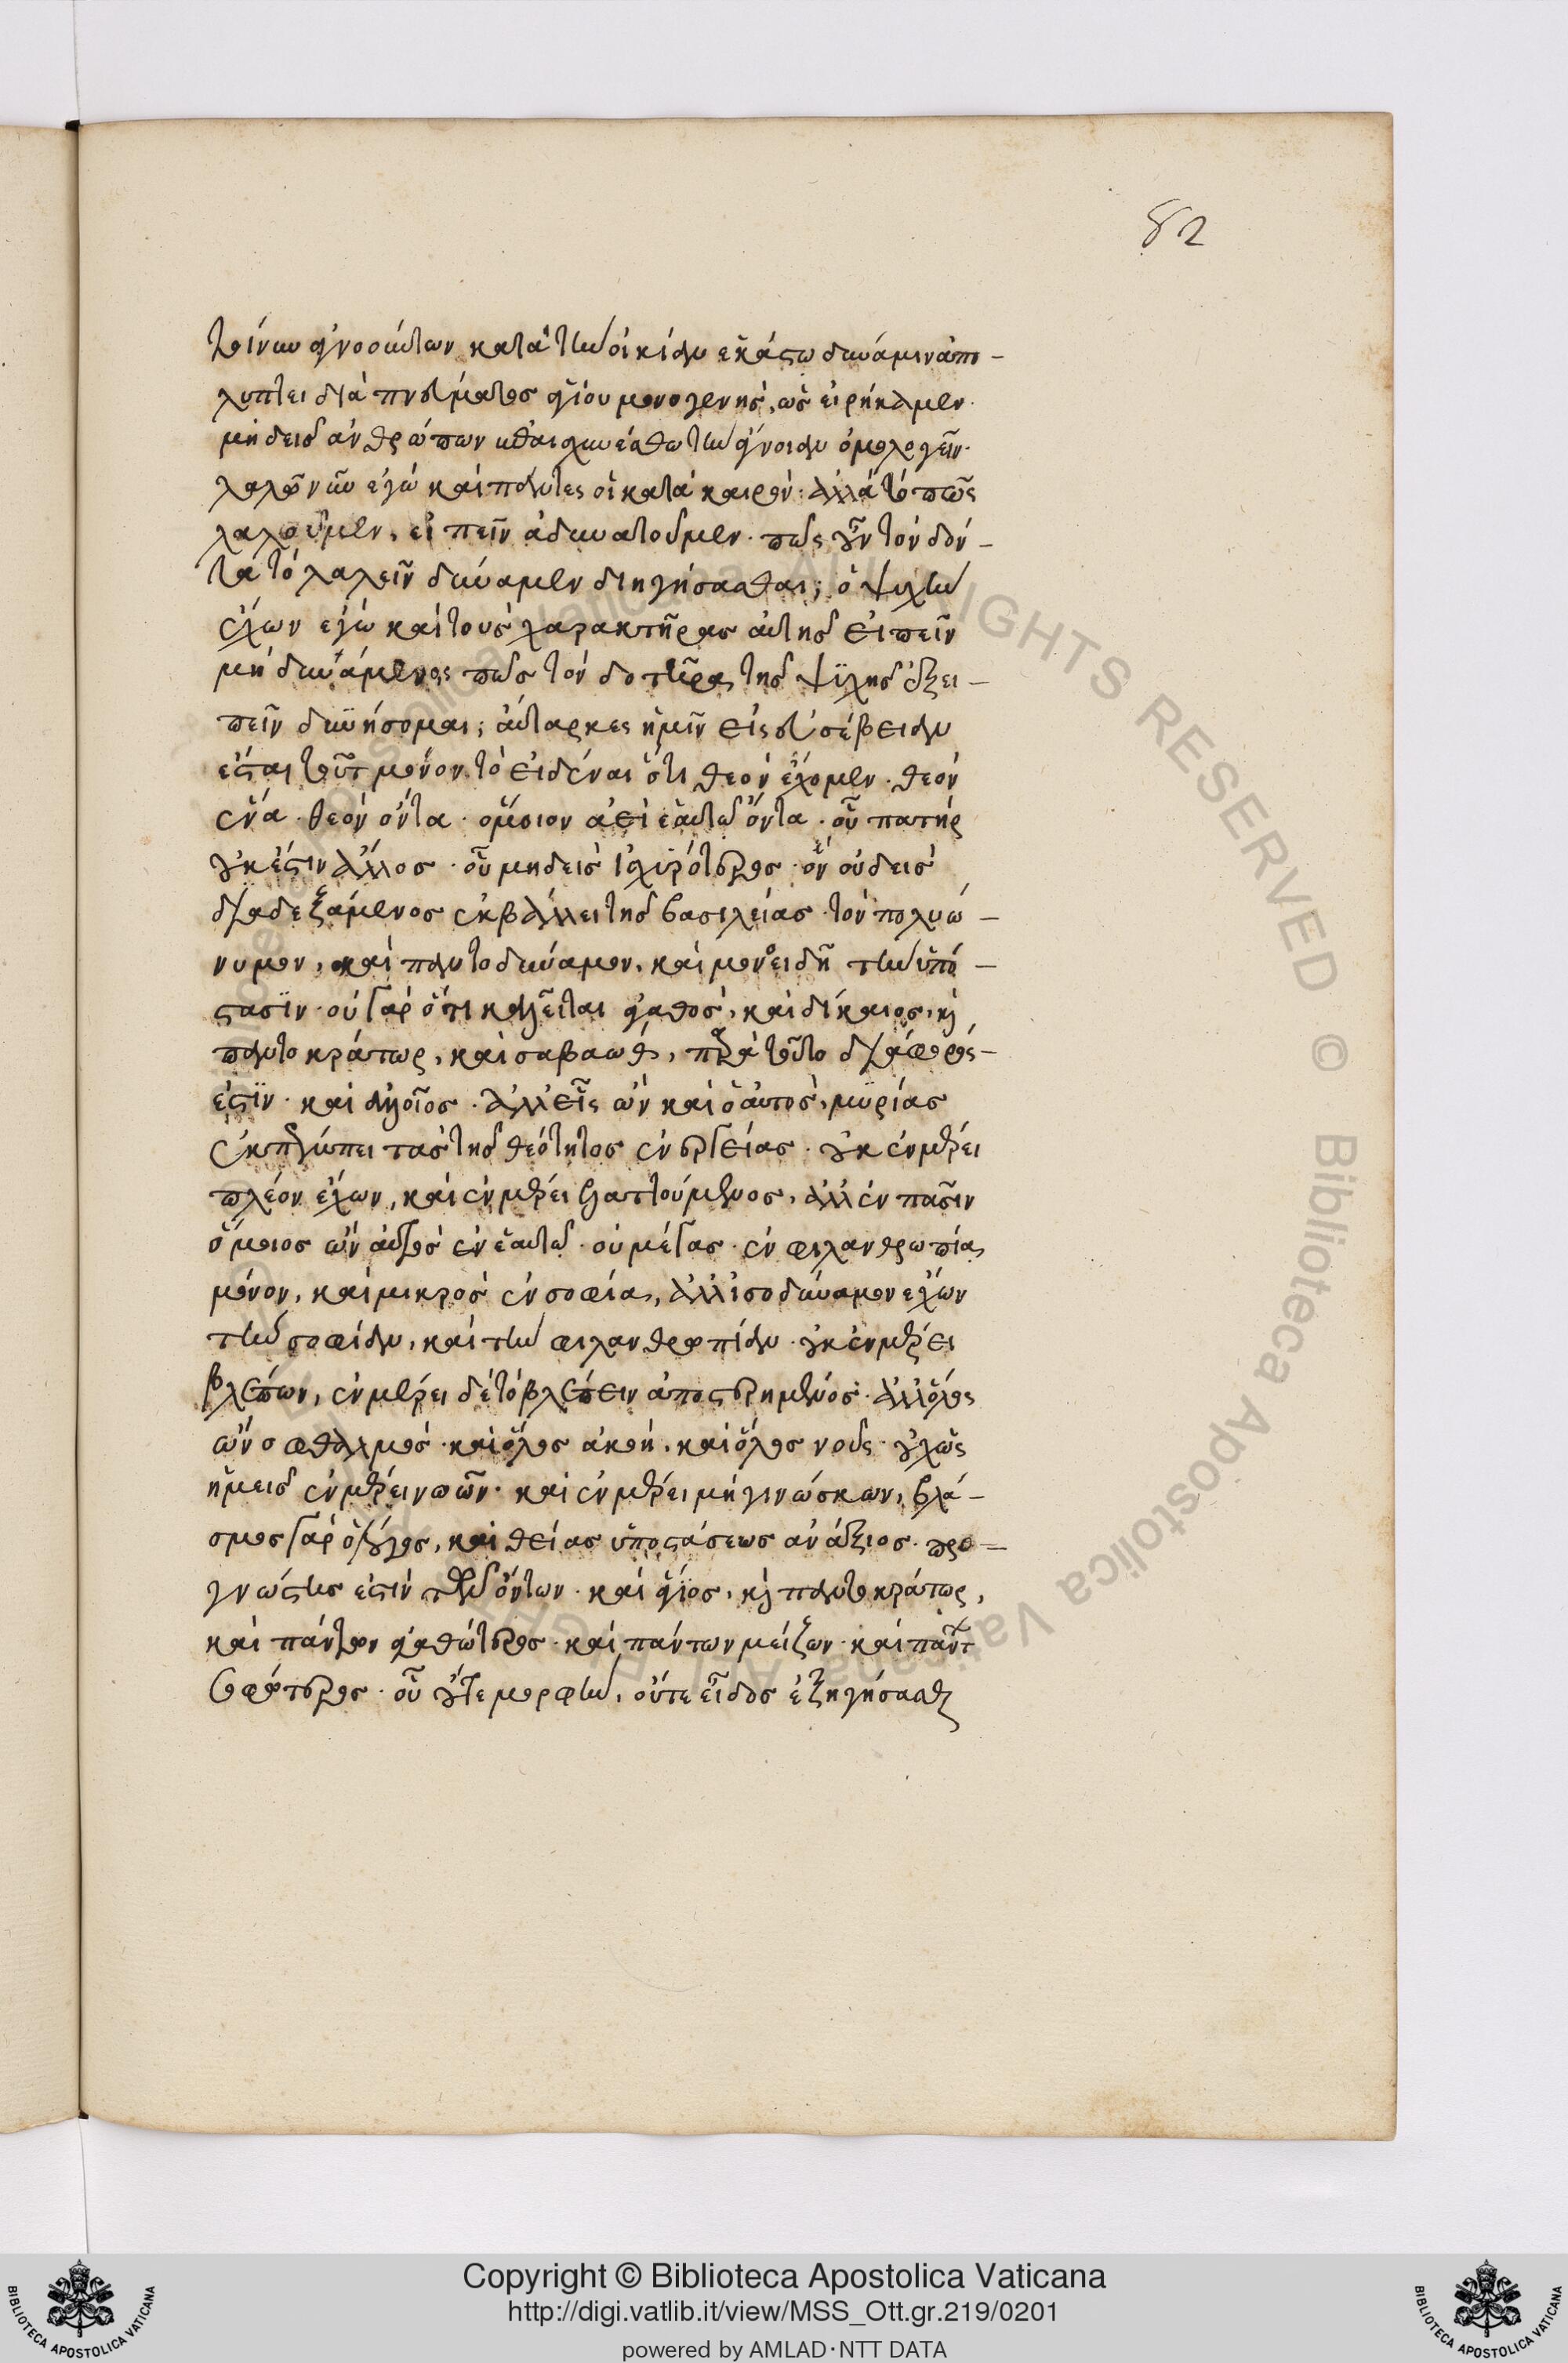 82
τοίνυν ἀγνοούντων κατὰ τὴν οἰκείαν ἑκάστω δύναμιν ἀπο-
λύπτει διὰ πνεύματος ἁγίου μονογενὴς, ὡς εἰρήκαμεν.
μηδεὶς ἀνθρώπων αἰσχυνέσθω τὴν ἄγνοιαν ὁμολογεῖν.
λαλῶ νῦν ἐγὼ καὶ πάντες οἱ κατὰ καιρόν. ἀλλὰ τὸ πῶς
λαλοῦμεν, εἰπεῖν ἀδυνατοῦμεν. πῶς οὖν τὸν δόν-
τα τὸ λαλεῖν δυνάμεν διηγήσασθαι; ὁ ψυχὴν
ἔχων ἐγὼ καὶ τοὺς χαρακτῆρας αὐτῆς εἰπεῖν
μὴ δυνάμενος πῶς τὸν δοτῆρα τῆς ψυχῆς ἐξει-
πεῖν δυνήσομαι; αὔταρκες ἡμῖν εἰς εὐσέβειαν
ἔσται τοῦτ μόνον τὸ εἰδέναι ὅτι θεὸν ἔχομεν. θεὸν
ἕνα. θεὸν ὄντα. ὅμοιον ἀεὶ ἑαυτῶ ὄντα. οὗ πατὴρ
οὐκ ἔστιν ἄλλος. οὗ μηδεὶς ἰσχυρότερος. ὃν οὐδεὶς
διαδεξάμενος ἐκβάλλει τῆς βασιλείας. τὸν πολυώ-
νυμον, καὶ παντοδύναμον, καὶ μονοειδῆ τὴν ὑπό-
στασιν. οὐ γὰρ ὅτι καλεῖται ἀγαθὸς, καὶ δίκαιος, καὶ
παντοκράτωρ, καὶ σαβαωθ, παρὰ τοῦτο διάφορός-
ἐστιν. καὶ ἀλλοῖος. ἀλλ εἷς ὢν καὶ ὁ αὐτὸς, μυρίας
ἐκπέμπει τὰς τῆς θεότητος ἐνεργείας. οὐκ ἐν μέρει
πλέον ἔχων, καὶ ἐν μέρει ἐλαττούμενος, ἀλλ ἐν πᾶσιν
ὅμοιος ὢν αὐτὸς ἐν ἑαυτῶ. οὐ μέγας. ἐν φιλανθρωπία
μόνον, καὶ μικρὸς ἐν σοφία, ἀλλ ἰσοδύναμον ἔχων
τὴν σοφίαν, καὶ τὴν φιλανθροπίαν. οὐκ ἐν μέρει
βλέπων, ἐν μέρει δὲ τὸ βλέπειν ἀποστερημένος. ἀλλ ὅλος
ὢν οφθαλμὸς. καὶ ὅλος ἀκοὴ, καὶ ὅλος νοῦς. οὐχ ὡς
ἡμεῖς ἐν μέρει νοῶν. καὶ ἐν μέρει μὴ γινώσκων, βλά-
σμος γὰρ ὁ λόγος, καὶ θείας ὑποστάσεως ἀνάξιος. προ-
γνώστης ἐστὶν τῶν ὄντων. καὶ ἅγιος, καὶ παντοκράτωρ,
καὶ πάντων ἀγαθώτερος. καὶ πάντων μείζων. καὶ πάντ
σοφώτερος. οὗ οὔτε μορφὴν, οὔτε εἶδος ἐξηγήσασθαι
Copyright © Biblioteca Apostolica Vaticana
http://digi.vatlib.it/view/MSS_Ott.gr.219/0201
powered by AMLAD·NTT DATA
BIBLIOTECA APOSTOLICA VATICANA
BIBLIOTECA APOSTOLICA VATICANA